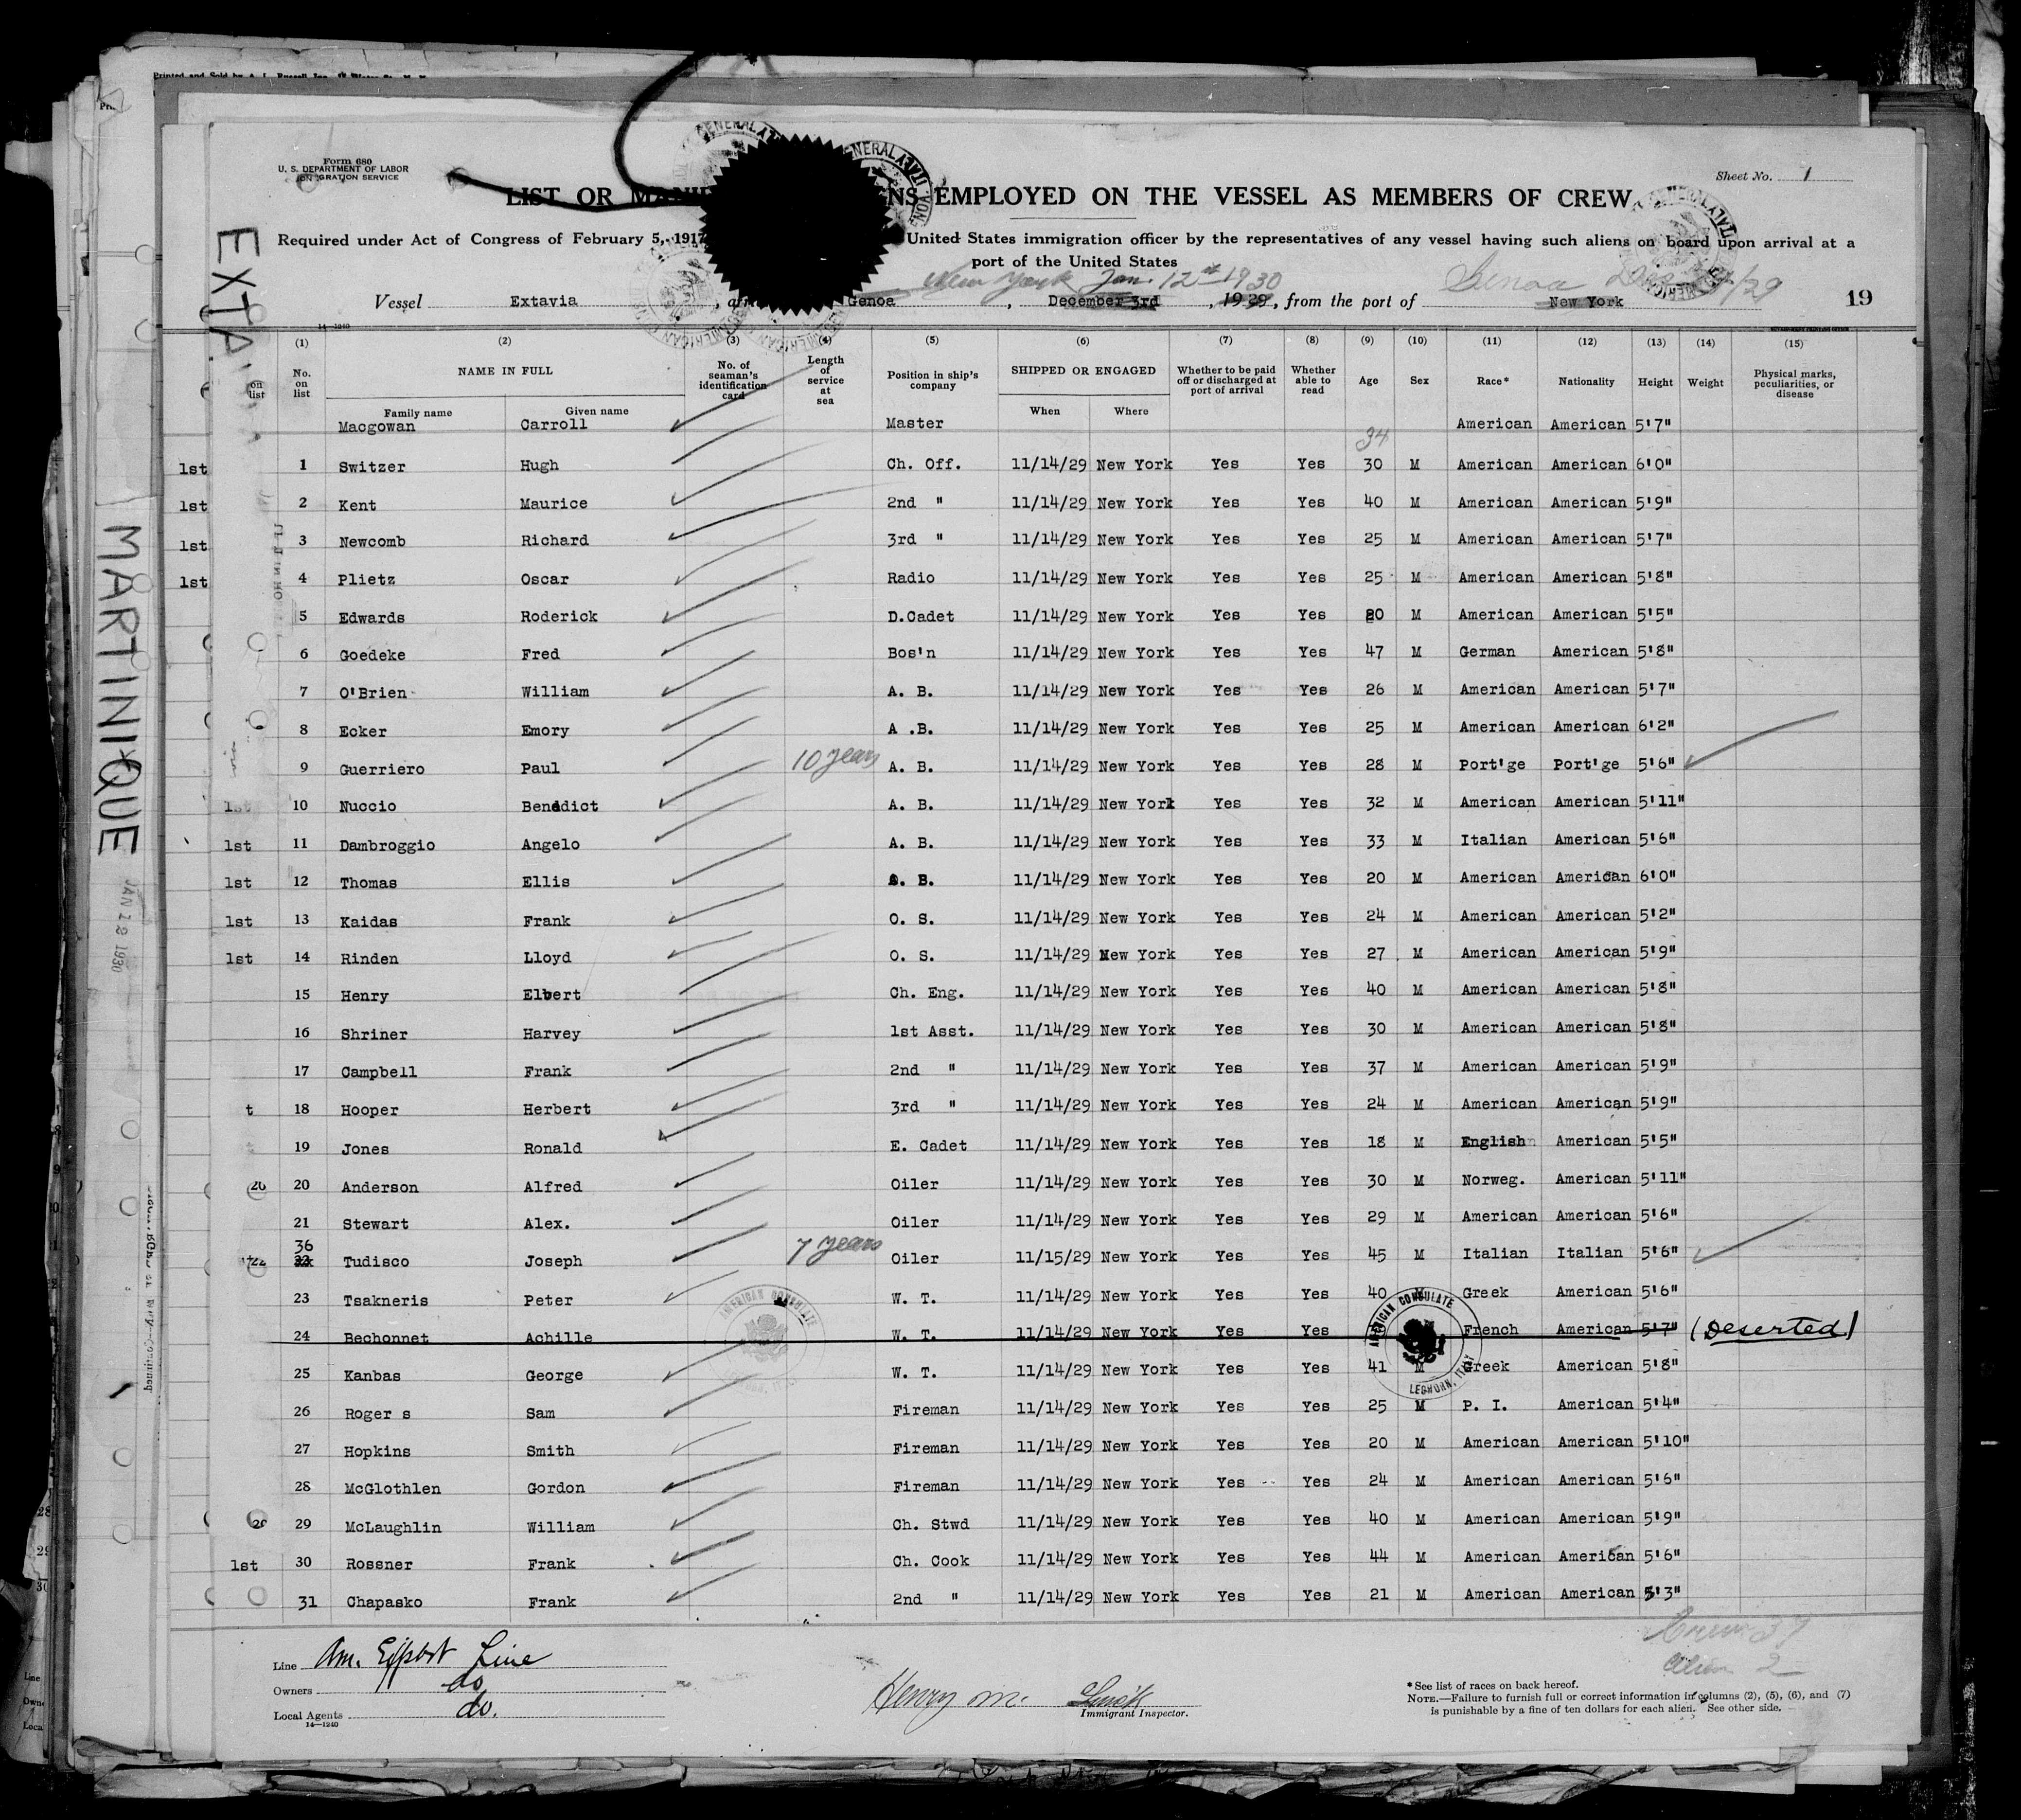 Printed and Sold by
Form 680
U. S. DEPARTMENT OF LABOR
GRATION SERVICE
Sheet No. 1
LIST OR EMPLOYED ON THE VESSEL AS MEMBERS OF CREW
Required under Act of Congress of February 5, 1917 United States immigration officer by the representatives of any vessel having such aliens on board upon arrival at a
port of the United States
New York Jan. 12th 1930 Genoa
Vessel Extavia , Genoa , December 3rd , 1929 , from the port of New York 19
EXTAVIA
MARTINIQUE
JAN 12 1930
14—1240
(1) (2) (3) (4) (5) (6) (7) (8) (9) (10) (11) (12) (13) (14) (15)
No. on list NAME IN FULL No. of seaman's identification card Length of service at sea Position in ship's company SHIPPED OR ENGAGED Whether to be paid off or discharged at port of arrival Whether able to read Age Sex Race* Nationality Height Weight Physical marks, peculiarities, or disease
Family name Given name When Where
Macgowan Carroll Master 34 American American 5'7"
1st 1 Switzer Hugh Ch. Off. 11/14/29 New York Yes Yes 30 M American American 6'0"
1st 2 Kent Maurice 2nd " 11/14/29 New York Yes Yes 40 M American American 5'9"
1st 3 Newcomb Richard 3rd " 11/14/29 New York Yes Yes 25 M American American 5'7"
1st 4 Plietz Oscar Radio 11/14/29 New York Yes Yes 25 M American American 5'8"
5 Edwards Roderick D.Cadet 11/14/29 New York Yes Yes 20 M American American 5'5"
6 Goedeke Fred Bos'n 11/14/29 New York Yes Yes 47 M German American 5'8"
7 O'Brien William A. B. 11/14/29 New York Yes Yes 26 M American American 5'7"
8 Ecker Emory A .B. 11/14/29 New York Yes Yes 25 M American American 6'2"
9 Guerriero Paul 10 years A. B. 11/14/29 New York Yes Yes 28 M Port'ge Port'ge 5'6"
1st 10 Nuccio Benedict A. B. 11/14/29 New York Yes Yes 32 M American American 5'11"
1st 11 Dambroggio Angelo A. B. 11/14/29 New York Yes Yes 33 M Italian American 5'6"
1st 12 Thomas Ellis B. 11/14/29 New York Yes Yes 20 M American American 6'0"
1st 13 Kaidas Frank O. S. 11/14/29 New York Yes Yes 24 M American American 5'2"
1st 14 Rinden Lloyd O. S. 11/14/29 New York Yes Yes 27 M American American 5'9"
15 Henry Elbert Ch. Eng. 11/14/29 New York Yes Yes 40 M American American 5'8"
16 Shriner Harvey 1st Asst. 11/14/29 New York Yes Yes 30 M American American 5'8"
17 Campbell Frank 2nd " 11/14/29 New York Yes Yes 37 M American American 5'9"
t 18 Hooper Herbert 3rd " 11/14/29 New York Yes Yes 24 M American American 5'9"
19 Jones Ronald E. Cadet 11/14/29 New York Yes Yes 18 M English American 5'5"
20 20 Anderson Alfred Oiler 11/14/29 New York Yes Yes 30 M Norweg. American 5'11"
21 Stewart Alex. Oiler 11/14/29 New York Yes Yes 29 M American American 5'6"
36
22 Tudisco Joseph 7 years Oiler 11/15/29 New York Yes Yes 45 M Italian Italian 5'6"
23 Tsakneris Peter W. T. 11/14/29 New York Yes Yes 40 M Greek American 5'6"
24 Bechonnet Achille W. T. 11/14/29 New York Yes Yes French American 5'7" (Deserted)
25 Kanbas George W. T. 11/14/29 New York Yes Yes 41 M Greek American 5'8"
26 Roger s Sam Fireman 11/14/29 New York Yes Yes 25 M P. I. American 5'4"
27 Hopkins Smith Fireman 11/14/29 New York Yes Yes 20 M American American 5'10"
28 McGlothlen Gordon Fireman 11/14/29 New York Yes Yes 24 M American American 5'6"
29 McLaughlin William Ch. Stwd 11/14/29 New York Yes Yes 40 M American American 5'9"
1st 30 Rossner Frank Ch. Cook 11/14/29 New York Yes Yes 44 M American American 5'6"
31 Chapasko Frank 2nd " 11/14/29 New York Yes Yes 21 M American American 5'3"
AMERICAN CONSULATE
LEGHORN, ITALY
Crew 37
Alien 2
Line Am. Export Line
Owners do
Local Agents do.
14—1240
Henry M.
Immigrant Inspector.
* See list of races on back hereof.
NOTE.—Failure to furnish full or correct information in columns (2), (5), (6), and (7)
is punishable by a fine of ten dollars for each alien. See other side.